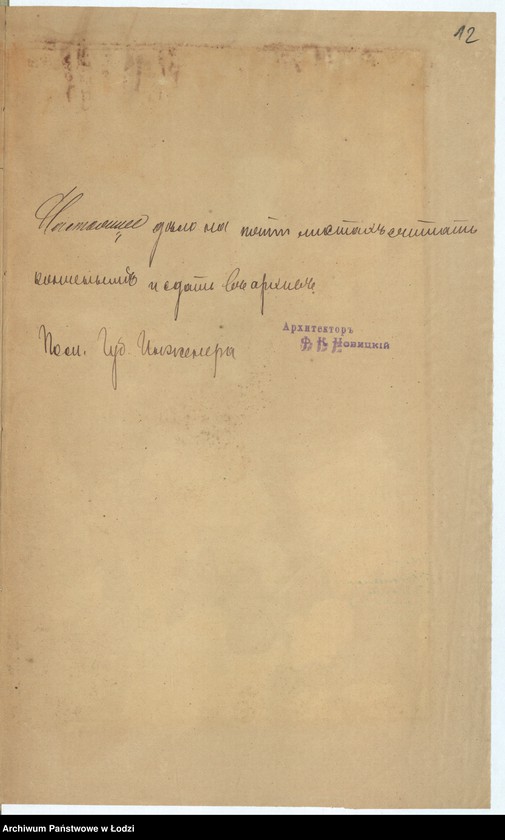 12
Настоящее дѣло на пяти листахъ считать
конченымъ и сдать въ архивъ.
Пом. Губ. Инженера
Архитекторъ
Ф. К. Новицкій
Archiwum Państwowe w Łodzi